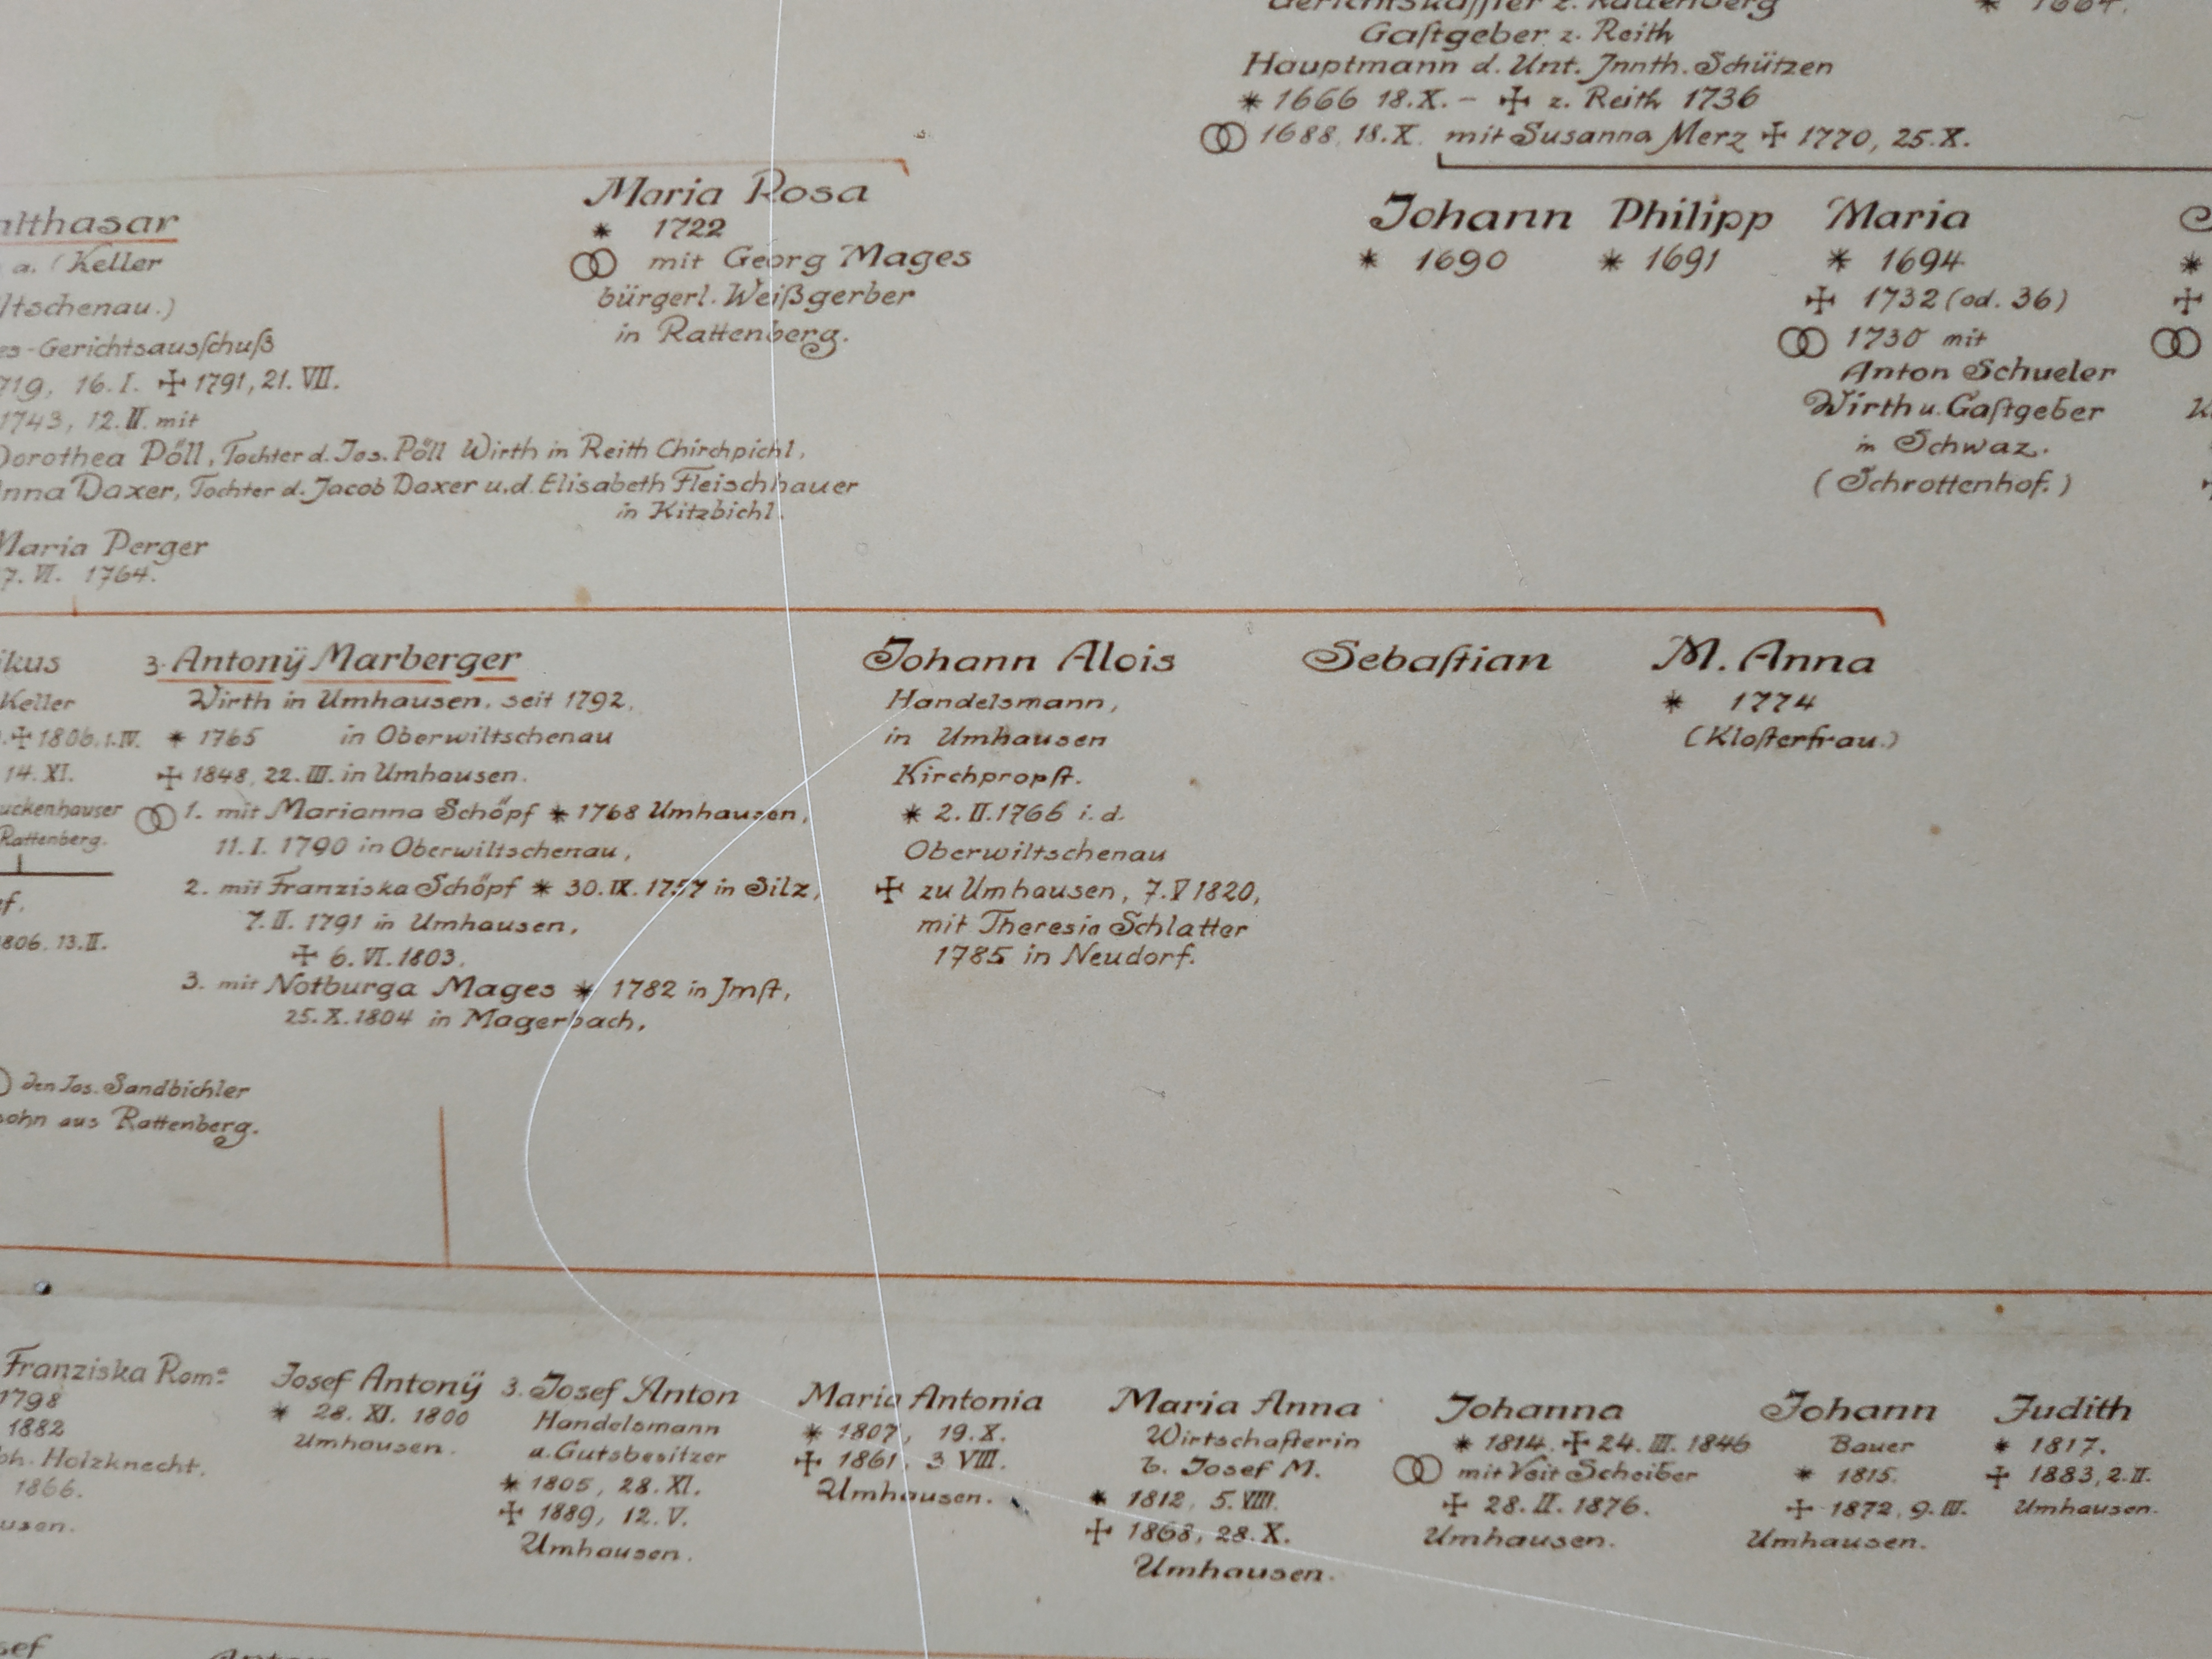 Gaſtgeber z. Reith
Hauptmann d. Unt. Jnnth. Schützen
* 1666 18.X. – ✠ z. Reith 1736
⚭ 1688, 18.X. mit Susanna Merz ✠ 1770, 25.X.
* 1664.
Maria Rosa
* 1722
⚭ mit Georg Mages
bürgerl. Weißgerber
in Rattenberg.
Johann
* 1690
Philipp
* 1691
Maria
* 1694
✠ 1732 (od. 36)
⚭ 1730 mit
Anton Schueler
Wirth u. Gaſtgeber
in Schwaz.
(Schrottenhof.)
althasar
a. (Keller
ltschenau.)
es-Gerichtsausſchuß
719, 16.I. ✠ 1791, 21.VII.
1743, 12.II. mit
Dorothea Pöll, Tochter d. Jos. Pöll Wirth in Reith Chirchpichl,
nna Daxer, Tochter d. Jacob Daxer u.d. Elisabeth Fleischhauer
in Kitzbichl.
Maria Perger
7. VI. 1764.
ikus
Keller
✠ 1806.1.IV.
14. XI.
uckenhauser
Rattenberg.
ef.
806. 13.II.
3. Antonÿ Marberger
Wirth in Umhausen, seit 1792,
* 1765 in Oberwiltschenau
✠ 1848, 22. III. in Umhausen.
⚭ 1. mit Marianna Schöpf * 1768 Umhausen,
11. I. 1790 in Oberwiltschenau,
2. mit Franziska Schöpf * 30. IX. 1757 in Silz,
7. II. 1791 in Umhausen,
✠ 6. VI. 1803.
3. mit Notburga Mages * 1782 in Jmſt,
25. X. 1804 in Magerbach,
Johann Alois
Handelsmann,
in Umhausen
Kirchpropſt.
* 2. II. 1766 i. d.
Oberwiltschenau
✠ zu Umhausen, 7. V 1820,
mit Theresia Schlatter
1785 in Neudorf.
Sebaſtian
M. Anna
* 1774
(Kloſterfrau.)
den Jos. Sandbichler
sohn aus Rattenberg.
Franziska Rom.
1798
1882
ph. Holzknecht.
1866.
usen.
Josef Antonÿ
* 28. XI. 1800
Umhausen.
3. Josef Anton
Handelsmann
u. Gutsbesitzer
* 1805, 28. XI.
✠ 1889, 12. V.
Umhausen.
Maria Antonia
* 1807, 19. X.
✠ 1861, 3 VIII.
Umhausen.
Maria Anna
Wirtschafterin
b. Josef M.
* 1812, 5. VIII.
✠ 1868, 28. X.
Umhausen.
Johanna
* 1814. ✠ 24. III. 1846
⚭ mit Veit Scheiber
✠ 28. II. 1876.
Umhausen.
Johann
Bauer
* 1815.
✠ 1872, 9. III.
Umhausen.
Judith
* 1817.
✠ 1883, 2. II.
Umhausen.
sef